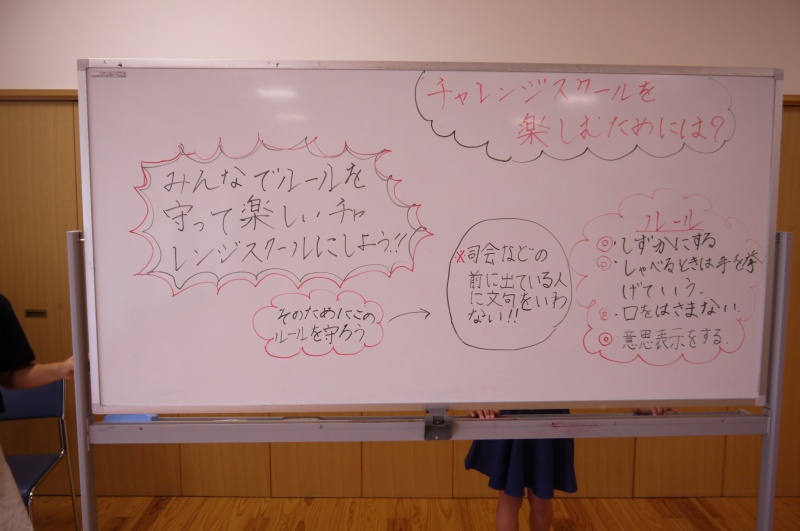 チャレンジスクールを
楽しむためには?
みんなでルールを
守って楽しいチャ
レンジスクールにしよう!!
そのためにこの
ルールを守ろう
※司会などの
前に出ている人
に文句をいわ
ない!!
ルール
◎・しずかにする
◎・しゃべるときは手を挙
げていう。
◎・口をはさまない。
◎・意思表示をする。